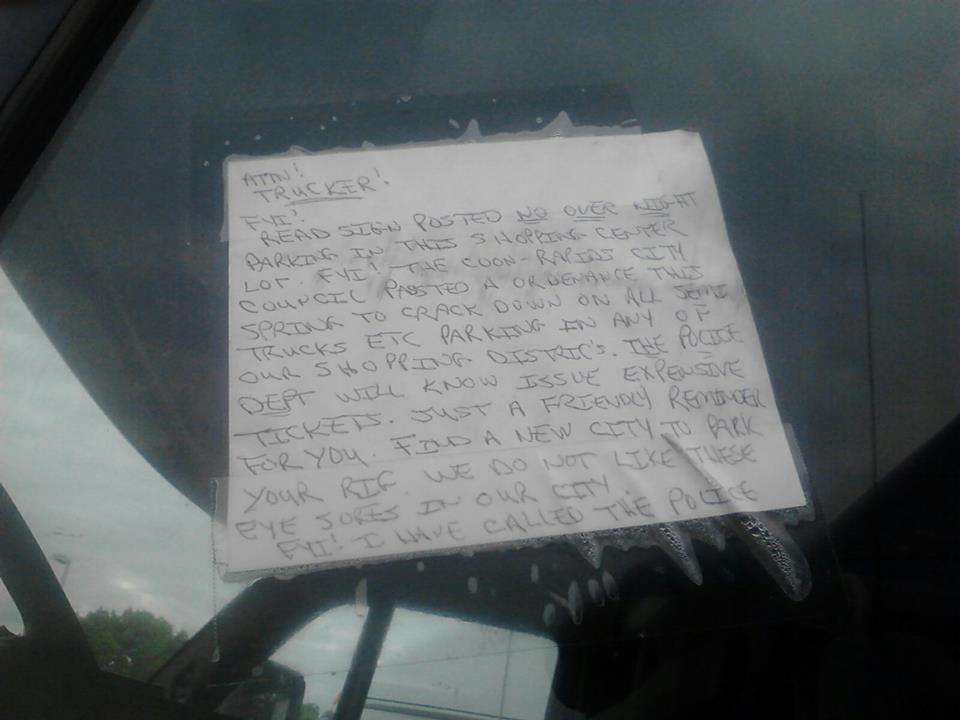 ATTN!
TRUCKER!
FYI!
READ SIGN POSTED NO OVER NIGHT
PARKING IN THIS SHOPPING CENTER
LOT. FYI! THE COON-RAPIDS CITY
COUNCIL PASSTED A ORDENANCE THIS
SPRING TO CRACK DOWN ON ALL SEMI
TRUCKS ETC PARKING IN ANY OF
OUR SHOPPING DISTRIC'S. THE POLICE
DEPT WILL KNOW ISSUE EXPENSIVE
TICKETS. JUST A FRIENDLY REMINDER
FOR YOU. FIND A NEW CITY TO PARK
YOUR RIG. WE DO NOT LIKE THESE
EYE SORES IN OUR CITY.
FYI! I HAVE CALLED THE POLICE